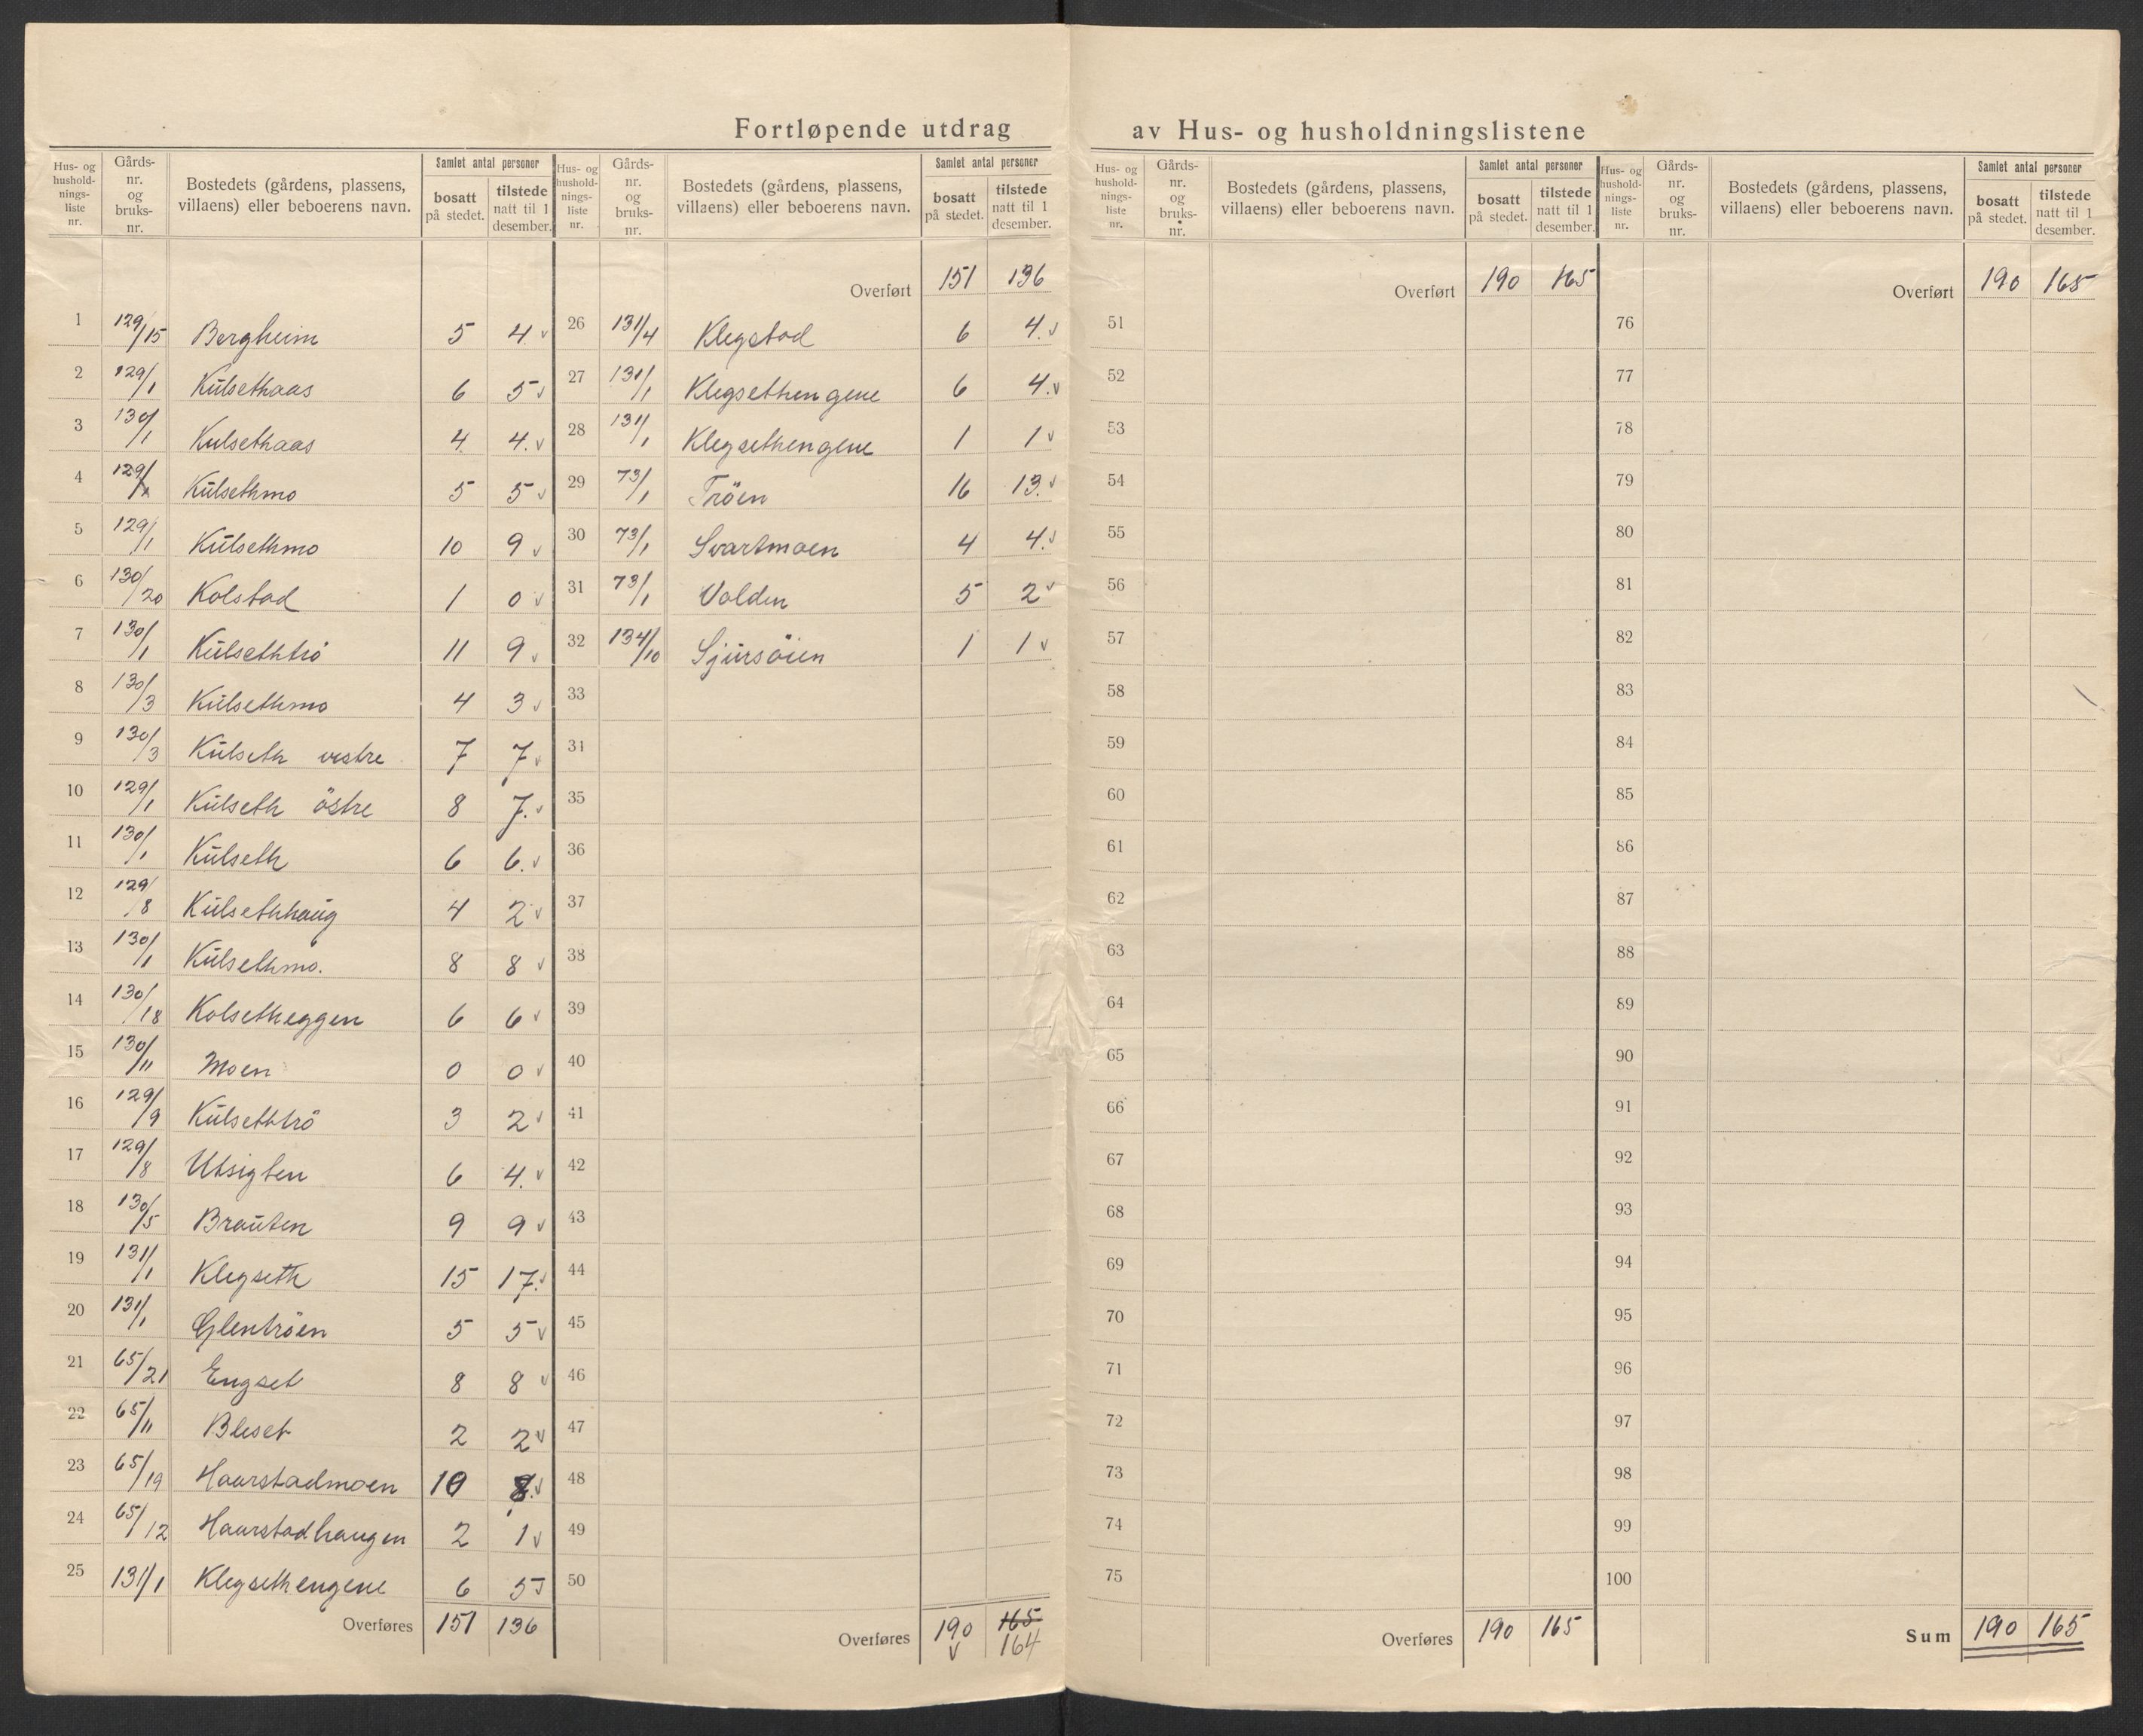 Fortløpende utdrag av Hus- og husholdningslistene
Hus- og hushold-nings-liste nr. Gårds-nr. og bruks-nr. Bostedets (gårdens, plassens, villaens) eller beboerens navn. Samlet antal personer bosatt på stedet. tilstede natt til 1 desember.
1 129/15 Bergheim 5 4 v
2 129/1 Külsethaas 6 5 v
3 130/1 Kulsethaas 4 4. v
4 129/ Külsethmo 5 5 v
5 129/1 Külsethmo 10 9 v
6 130/20 Kolstad 1 0 v
7 130/1 Külsethtrö 11 9 v
8 130/3 Külsethmo 4 3 v
9 130/3 Külseth vestre 7 7 v
10 129/1 Külseth östre 8 7. v
11 130/1 Külseth 6 6. v
12 129/8 Külsethhaüg 4 2 v
13 130/1 Külsethmo. 8 8 v
14 130/18 Kolsetheggen 6 6 v
15 130/11 Moen 0 0 v
16 129/9 Külsethtrö 3 2 v
17 129/8 Utsigten 6 4. v
18 130/5 Braüten 9 9 v
19 131/1 Klegseth 15 17. v
20 131/1 Glentröen 5 5 v
21 65/21 Engset 8 8 v
22 65/11 Bleset 2 2 v
23 65/19 Haarstadmoen 10 8. v
24 65/12 Haarstadhaugen 2 1 v
25 131/1 Klegsethengene 6 5 v
Overføres 151 136
Hus- og hushold-nings-liste nr. Gårds-nr. og bruks-nr. Bostedets (gårdens, plassens, villaens) eller beboerens navn. Samlet antal personer bosatt på stedet. tilstede natt til 1 desember.
Overført 151 136
26 131/4 Klegstad 6 4. v
27 131/1 Klegsethengene 6 4. v
28 131/1 Klegsethengene 1 1 v
29 73/1 Tröen 16 13. v
30 73/1 Svartmoen 4 4. v
31 73/1 Volden 5 2 v
32 134/10 Sjürsöien 1 1 v
33
34
35
36
37
38
39
40
41
42
43
44
45
46
47
48
49
50
Overføres 190 165
v 164
Hus- og hushold-nings-liste nr. Gårds-nr. og bruks-nr. Bostedets (gårdens, plassens, villaens) eller beboerens navn. Samlet antal personer bosatt på stedet. tilstede natt til 1 desember.
Overført 190 165
51
52
53
54
55
56
57
58
59
60
61
62
63
64
65
66
67
68
69
70
71
72
73
74
75
Overføres 190 165
Hus- og hushold-nings-liste nr. Gårds-nr. og bruks-nr. Bostedets (gårdens, plassens, villaens) eller beboerens navn. Samlet antal personer bosatt på stedet. tilstede natt til 1 desember.
Overført 190 165
76
77
78
79
80
81
82
83
84
85
86
87
88
89
90
91
92
93
94
95
96
97
98
99
100
Sum 190 165